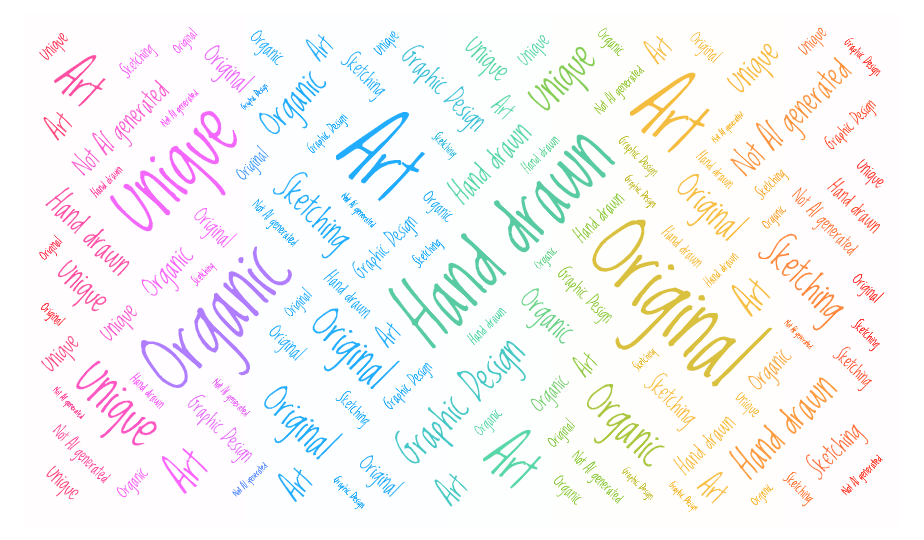 Unique
Art
Sketching
Original
Original
Organic
Art
Unique
Sketching
Graphic Design
Unique
Unique
Organic
Art
Original
Unique
Unique
Graphic Design
Art
Not AI generated
Not AI generated
Graphic Design
Organic
Art
Unique
Not AI generated
Art
Not AI generated
Not AI generated
Graphic Design
Hand drawn
Unique
Original
Graphic Design
Art
Sketching
Hand drawn
Hand drawn
Graphic Design
Hand drawn
Sketching
Unique
Hand drawn
Original
Original
Not AI generated
Sketching
Not AI generated
Organic
Hand drawn
Graphic Design
Original
Organic
Not AI generated
Hand drawn
Unique
Organic
Sketching
Organic
Graphic Design
Sketching
Hand drawn
Organic
Original
Hand drawn
Hand drawn
Sketching
Original
Original
Unique
Unique
Original
Hand drawn
Original
Original
Art
Hand drawn
Organic
Graphic Design
Art
Not AI generated
Sketching
Unique
Not AI generated
Hand drawn
Not AI generated
Graphic Design
Graphic Design
Organic
Art
Sketching
Organic
Sketching
Not AI generated
Unique
Graphic Design
Original
Sketching
Organic
Organic
Original
Organic
Sketching
Hand drawn
Unique
Hand drawn
Sketching
Unique
Organic
Art
Not AI generated
Art
Graphic Design
Original
Art
Art
Organic
Not AI generated
Graphic Design
Graphic Design
Art
Organic
Sketching
Not AI generated